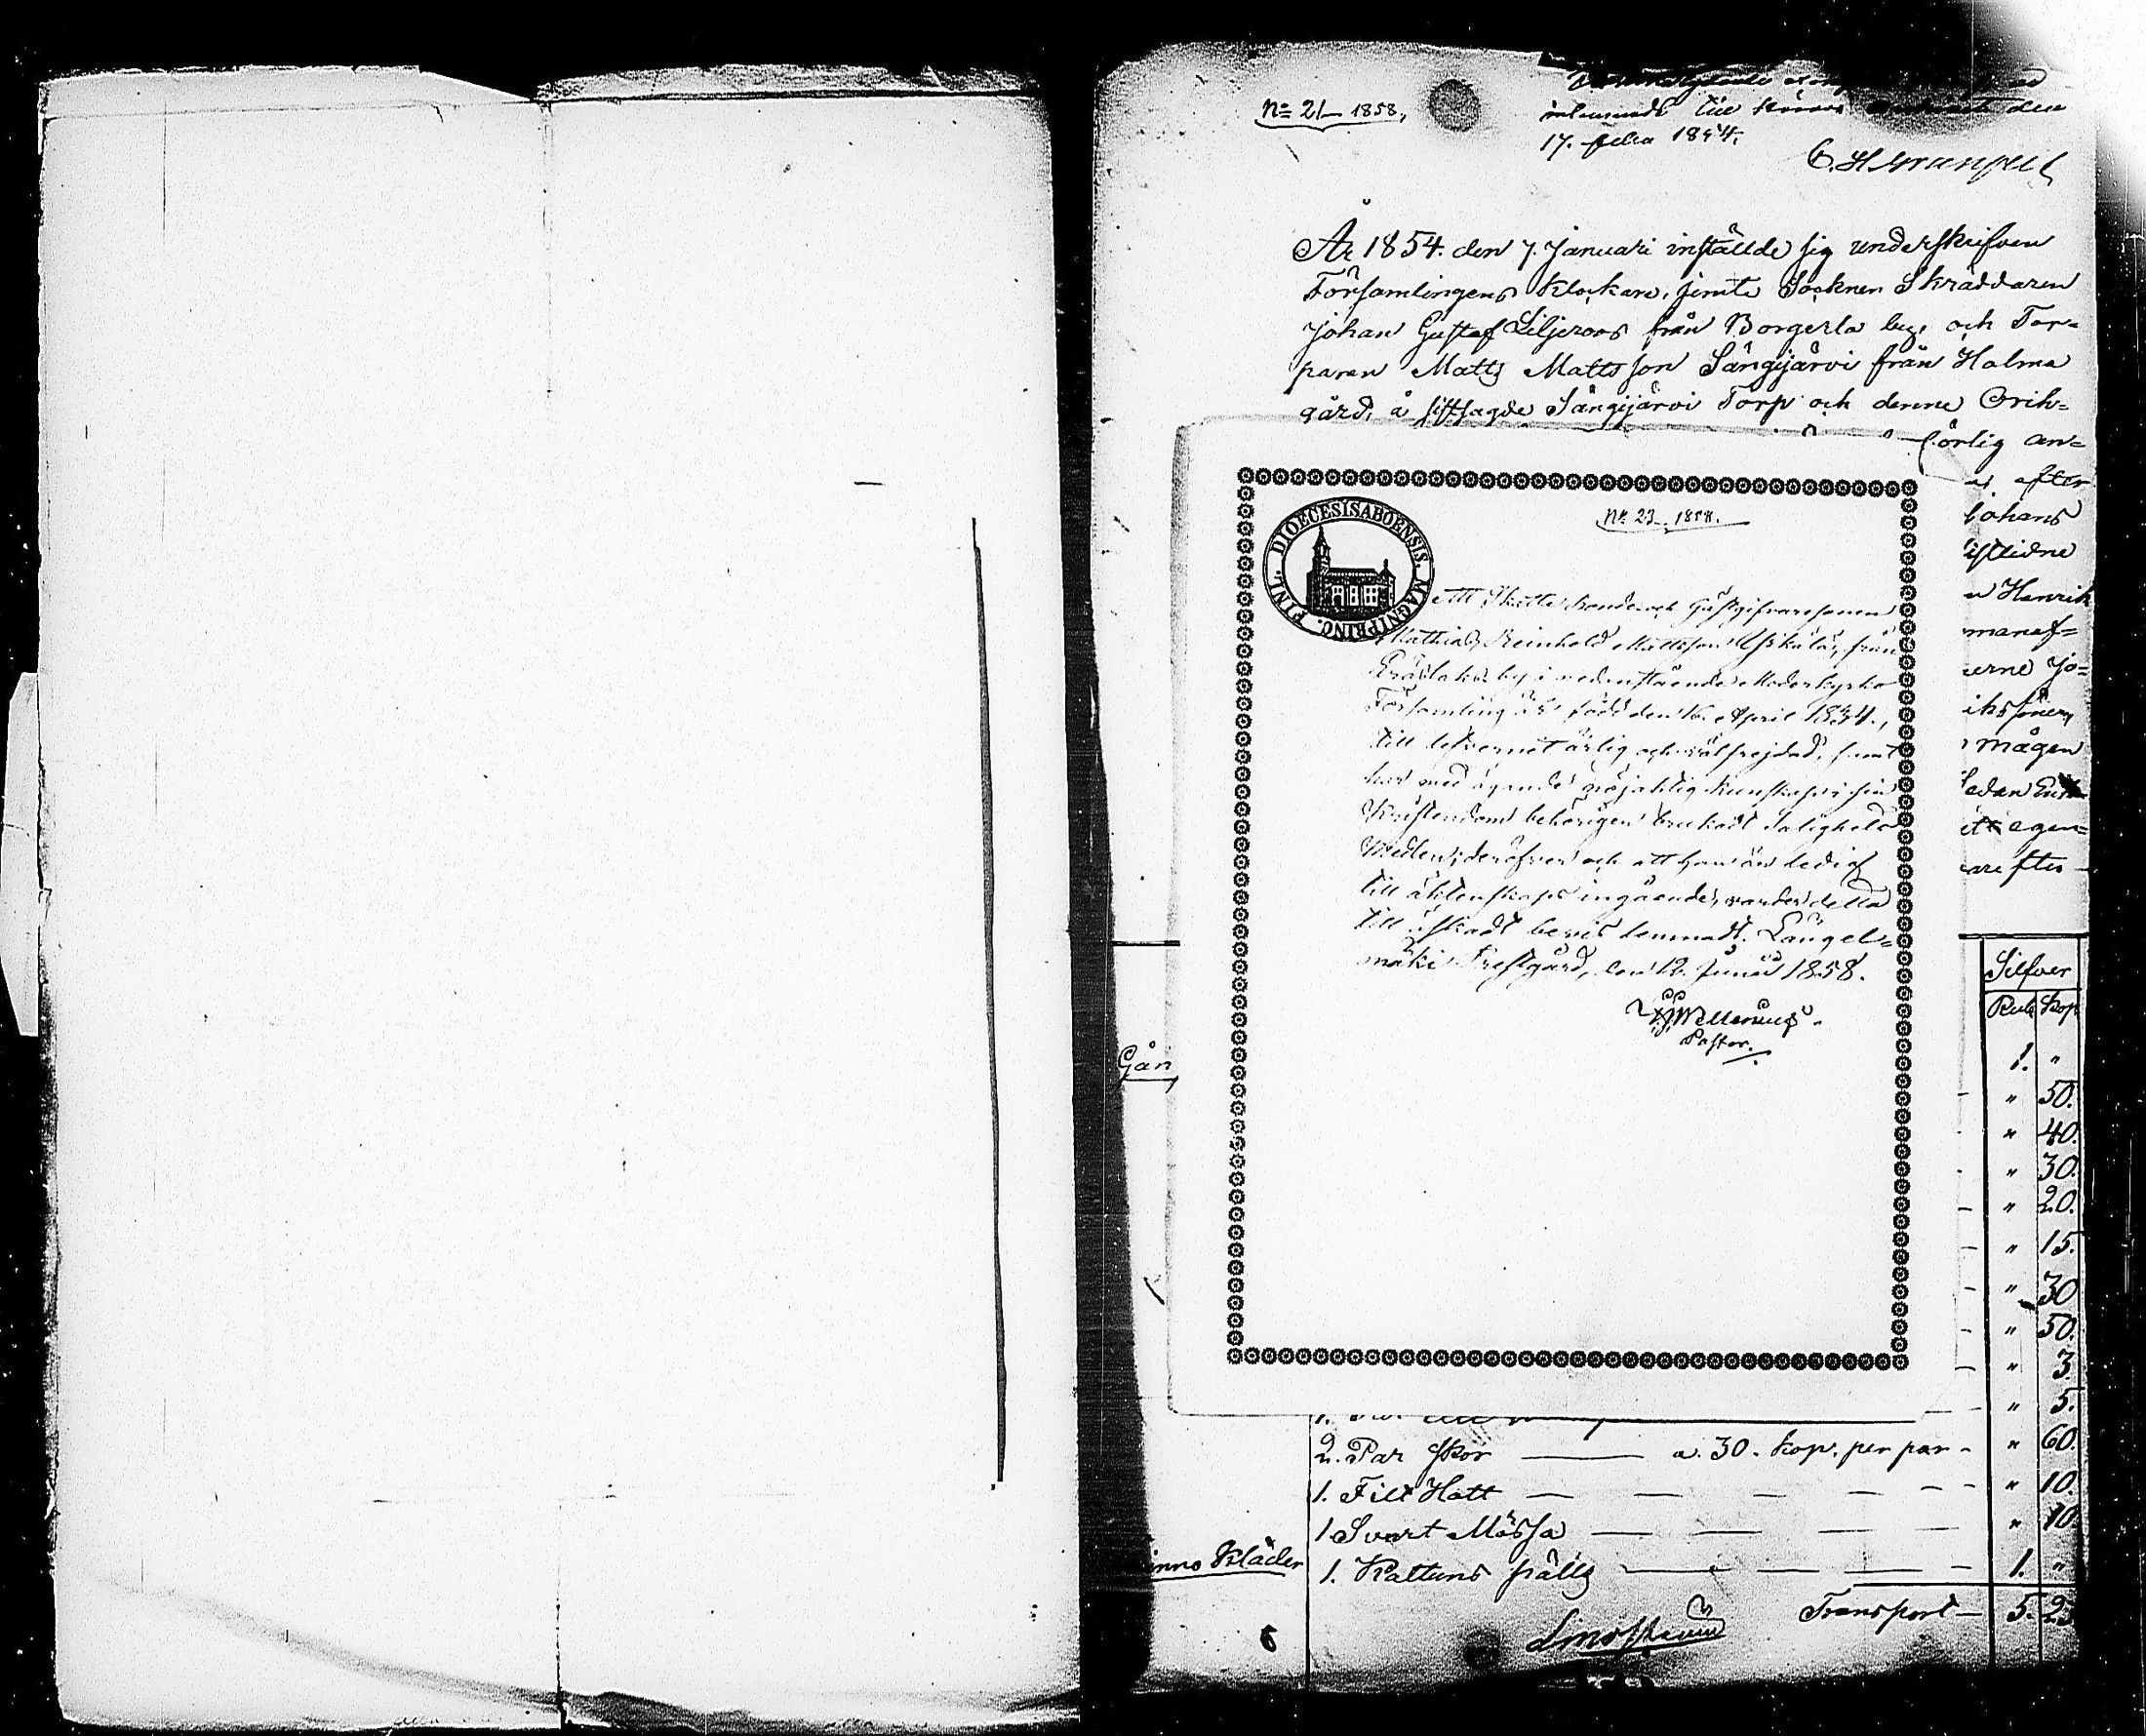 No 21 1858,
17. Febr 1854.
År 1854. den 7. Januari inställde sig underskrifven
Församlingens Klockare, jemte Socknen Skräddaren
Johan Gustaf Liljeroos från Borgerla by, och Tor=
paren Matts Mattsson Sångijärvi från Holma
gård, å sistsagde Sångijärvi Torp och denne Erik=
örlig an=
efter
Johans
Henrik
erne Jo=
mågen
egen=
efter
No 23 1858.
DIOECESIS ABOENSIS. MAGNI PRINC. FINL.
Att Skatte bonde och Gästgifvaresonen
Mathias Reinhold Mattsson Uskala, från
by i nedanstående Moderkyrko
Församling är född den 16. April 1834.,
till lefvernet ärlig och välfrejdad, samt
har med ägande nöjaktig kunskap i sin
Kristendom behörigen brukadt Salighets
Medlen; deröfver och att han är ledig
till äktenskaps ingående, varder detta
till åskadt bevis lemnadt. Längel=
mäki Prestgård, den 12. Junii 1858.
Pastor.
Silfver
Rub Kop
Gån
1. "
" 50.
" 40.
" 30.
" 20.
" 15.
" 30
" 50.
" 3.
" 5.
2. Par Skor — a. 30. kop. per par - " 60.
1. Filt Hatt — " 10.
1 Svart Mössa — " 10
inns Kläder 1. Kattuns — 1. "
Transport — 5. 23